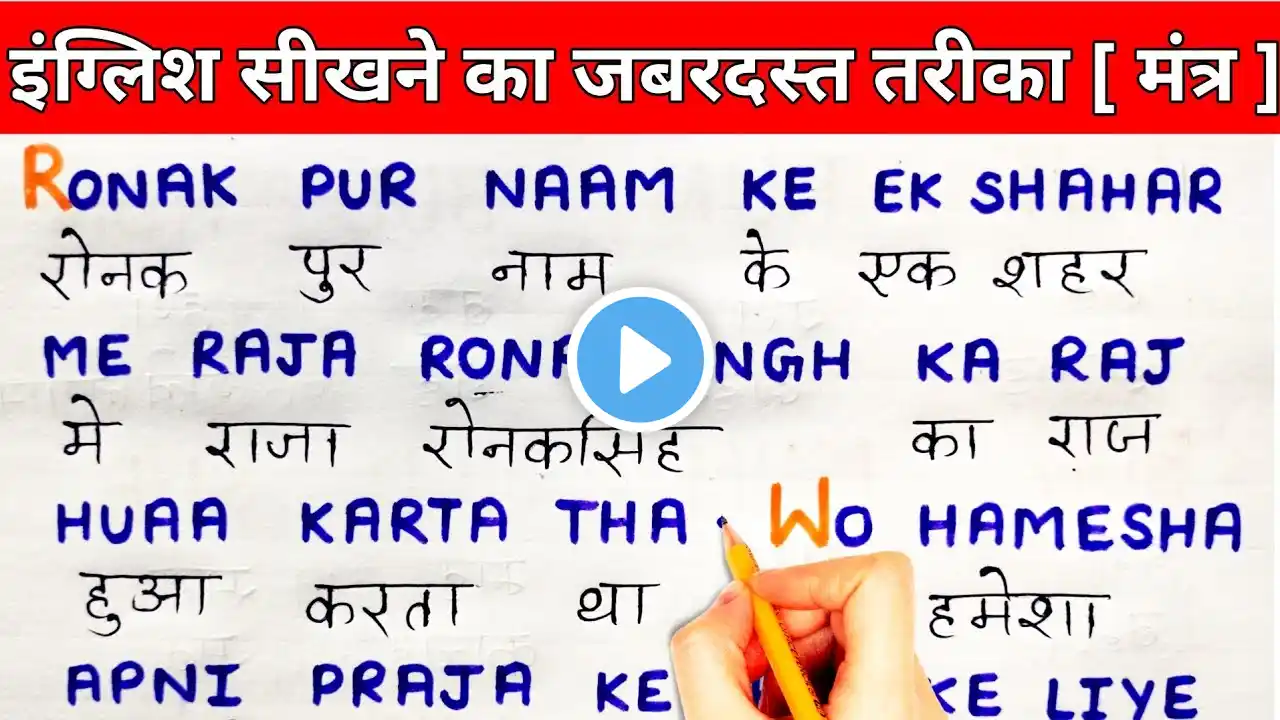 इंग्लिश सीखने का जबरदस्त तरीका [ मंत्र ]
RONAK PUR NAAM KE EK SHAHAR
रोनक पुर नाम के एक शहर
ME RAJA KA RAJ
मे राजा रोनकसिंह का राज
HUAA KARTA THA WO HAMESHA
हुआ करता था हमेशा
APNI PRAJA KE KE LIYE